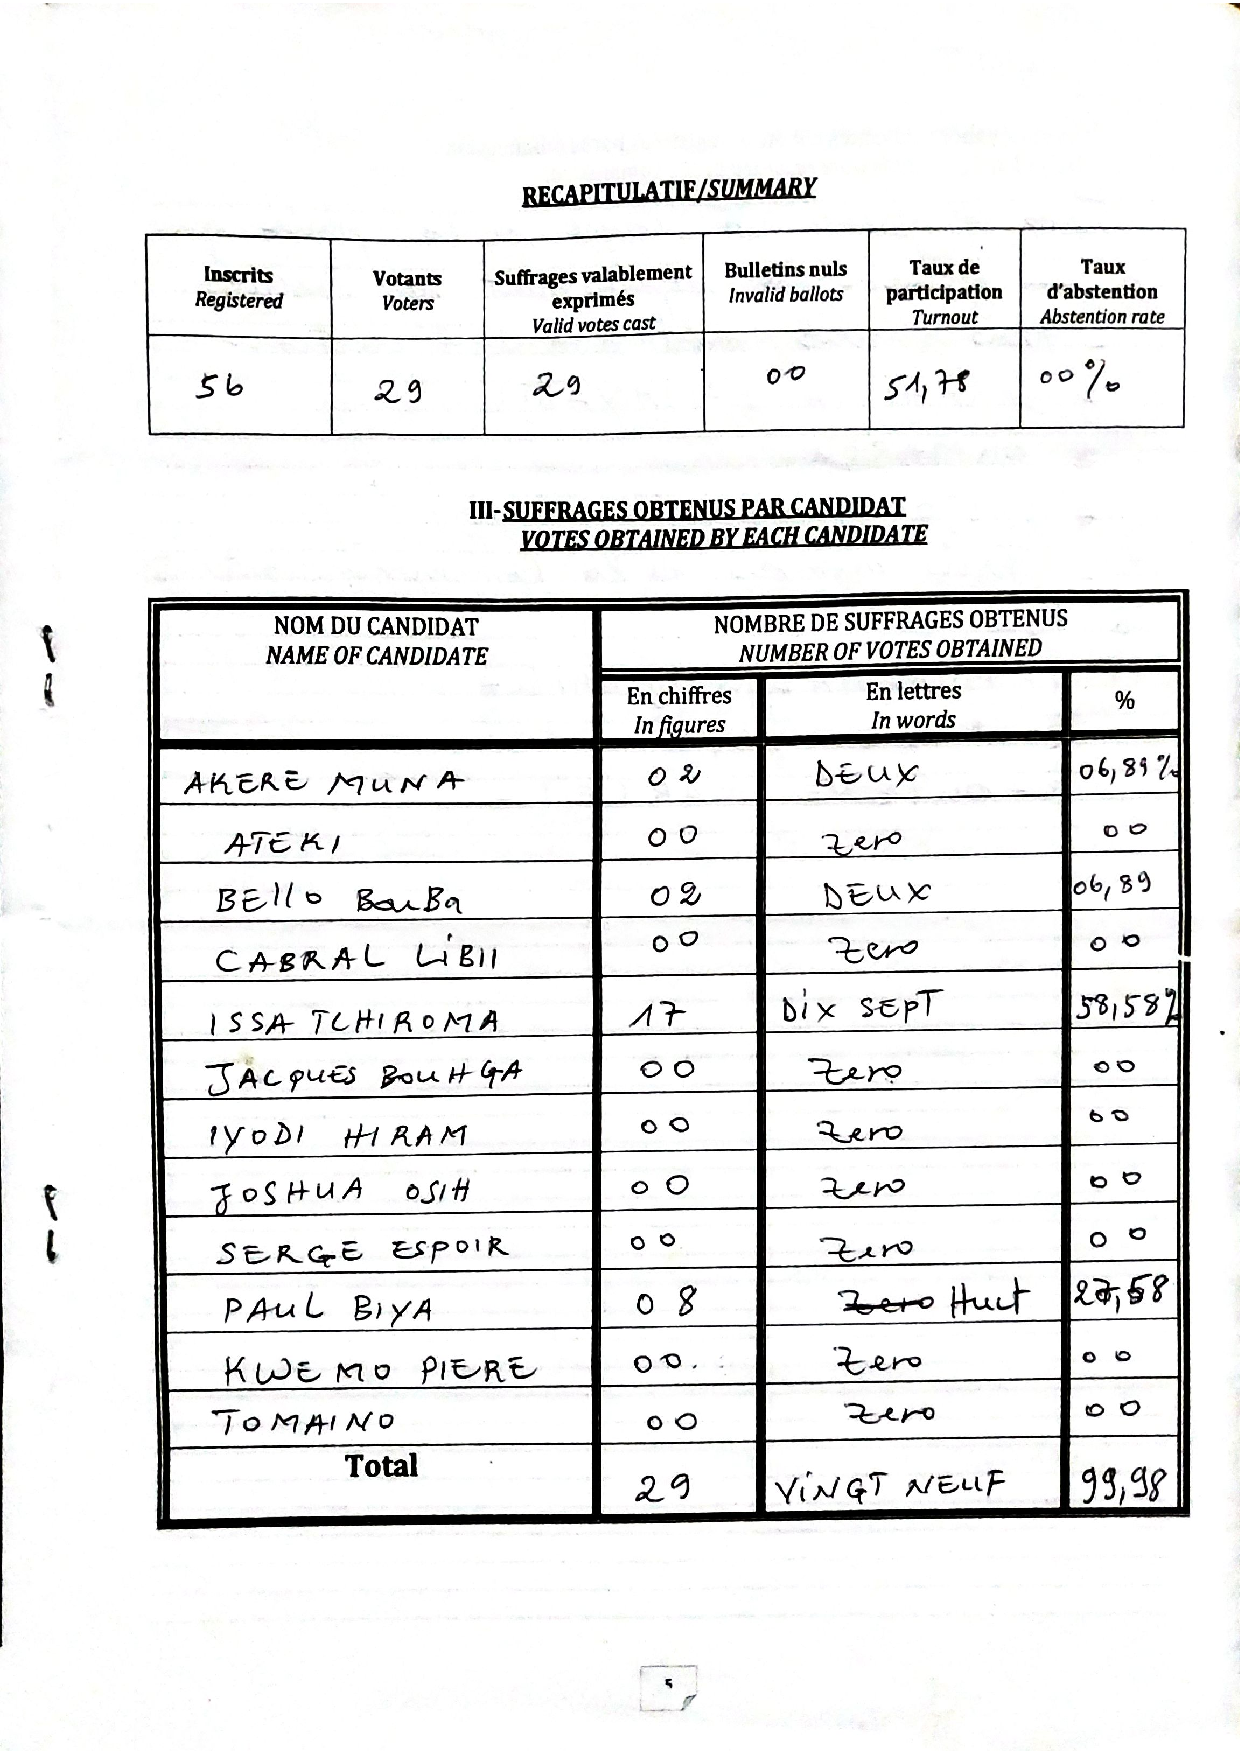 RECAPITULATIF/SUMMARY
Inscrits
Registered
Votants
Voters
Suffrages valablement
exprimés
Valid votes cast
Bulletins nuls
Invalid ballots
Taux de
participation
Turnout
Taux
d'abstention
Abstention rate
56 29 29 00 51,78 00%
III-SUFFRAGES OBTENUS PAR CANDIDAT
VOTES OBTAINED BY EACH CANDIDATE
NOM DU CANDIDAT
NAME OF CANDIDATE
NOMBRE DE SUFFRAGES OBTENUS
NUMBER OF VOTES OBTAINED
En chiffres
In figures
En lettres
In words
%
AKERE MUNA 02 DEUX 06,89%
ATEKI 00 Zero 00
BEllo BouBa 02 DEUX 06,89
CABRAL LiBII 00 Zero 00
ISSA TCHIROMA 17 Dix SEPT 58,58%
JACQUES BOUHGA 00 Zero 00
IYODI HIRAM 00 Zero 00
JOSHUA OSIH 00 Zero 00
SERGE ESPOIR 00 Zero 00
PAUL BIYA 08 Zero Huit 27,58
KWEMO PIERE 00 Zero 00
TOMAINO 00 Zero 00
Total 29 VINGT NEUF 99,98
5